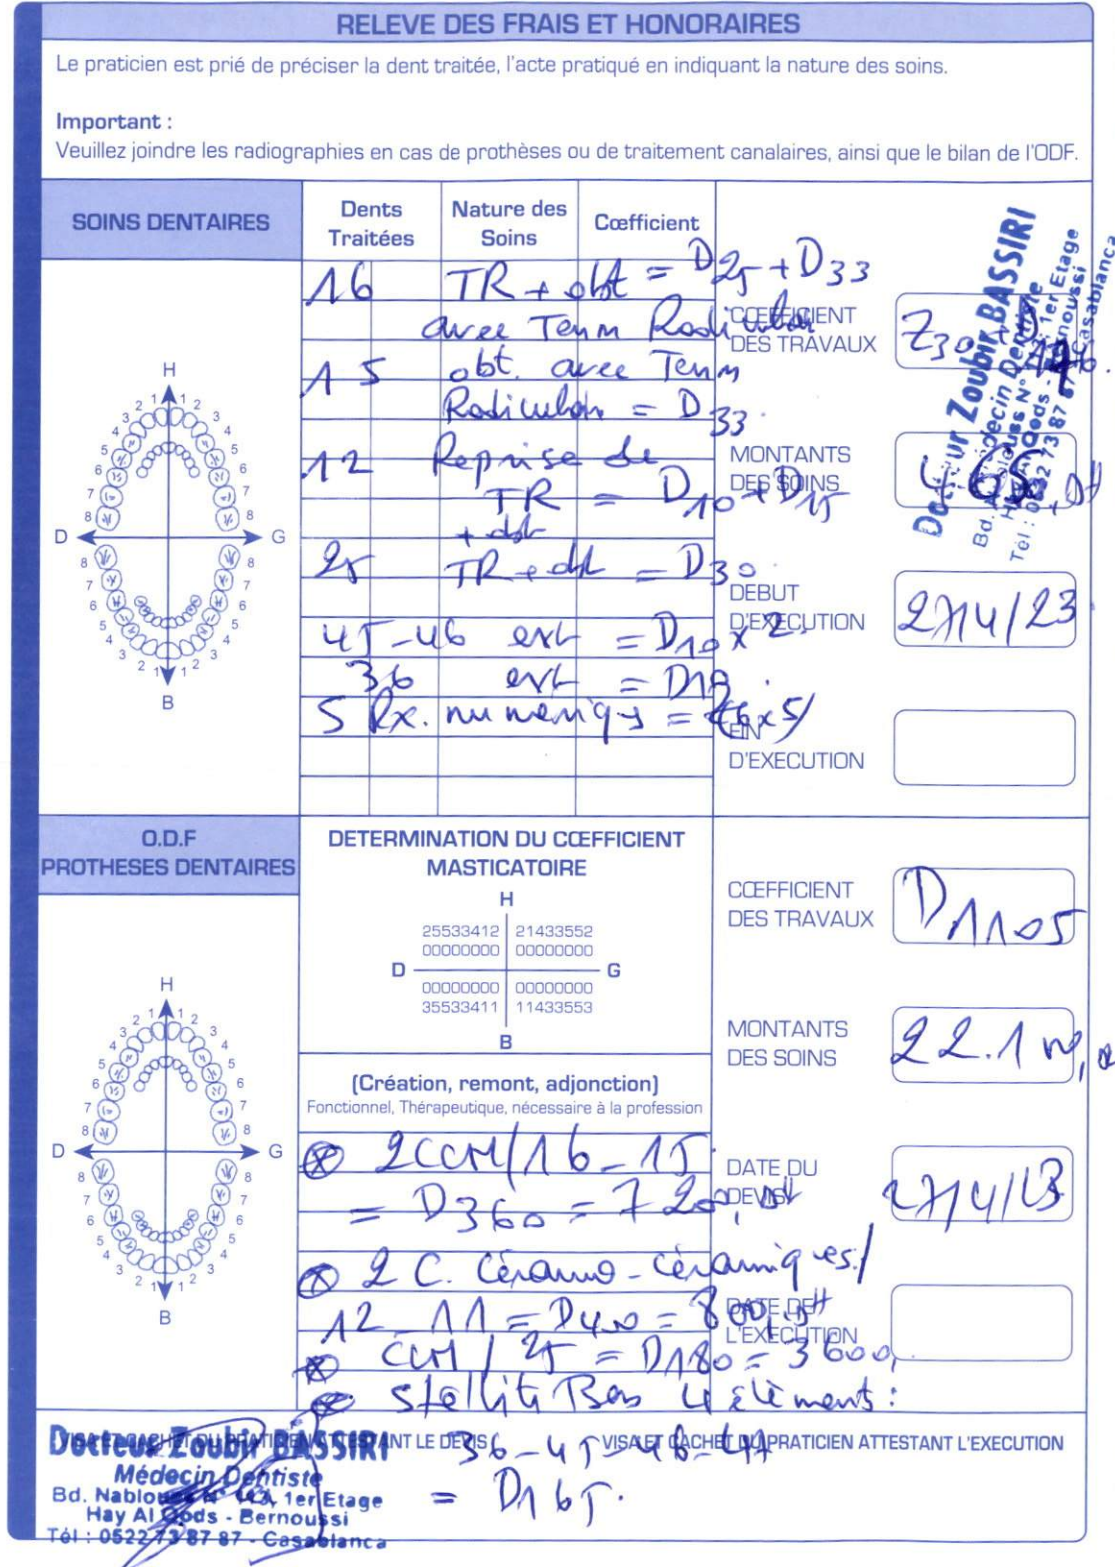 RELEVE DES FRAIS ET HONORAIRES
Le praticien est prié de préciser la dent traitée, l'acte pratiqué en indiquant la nature des soins.
Important :
Veuillez joindre les radiographies en cas de prothèses ou de traitement canalaires, ainsi que le bilan de l'ODF.
SOINS DENTAIRES
Dents Traitées
Nature des Soins
Cœfficient
16 TR + obt = D25 + D33
avec Tenon
15 obt. avec Tenon
= D33
12 Reprise de
TR = D10 + D15
+ obt
25 TR + obt = D30
45-46 ext = D10 x 2
36 ext = D10
5 Rx. = Z6x5/
H
D G
B
COEFFICIENT DES TRAVAUX
Z30
MONTANTS DES SOINS
DEBUT D'EXECUTION
27/4/23
FIN D'EXECUTION
Docteur Zoubir BASSIRI
Médecin Dentiste
1er Etage
Casablanca
O.D.F
PROTHESES DENTAIRES
DETERMINATION DU CŒFFICIENT MASTICATOIRE
H
25533412 21433552
00000000 00000000
D G
00000000 00000000
35533411 11433553
B
(Création, remont, adjonction)
Fonctionnel, Thérapeutique, nécessaire à la profession
⊗ 2CCM/16-15
= D360 = 7200,
⊗ 2 C. Céramo-céramiques/
12 11 = D400 = 8000,
CCM / 25 = D180 = 3600,
Stellite Bas 4 éléments:
36-45-46-47
= D165.
H
D G
B
CŒFFICIENT DES TRAVAUX
D1105
MONTANTS DES SOINS
22.1
DATE DU DEVIS
27/4/23
DATE DE L'EXECUTION
VISA ET CACHET DU PRATICIEN ATTESTANT LE DEVIS
VISA ET CACHET DU PRATICIEN ATTESTANT L'EXECUTION
Docteur Zoubir BASSIRI
Médecin Dentiste
1er Etage
Hay Al Qods - Bernoussi
Tél : 0522 73 87 87 - Casablanca